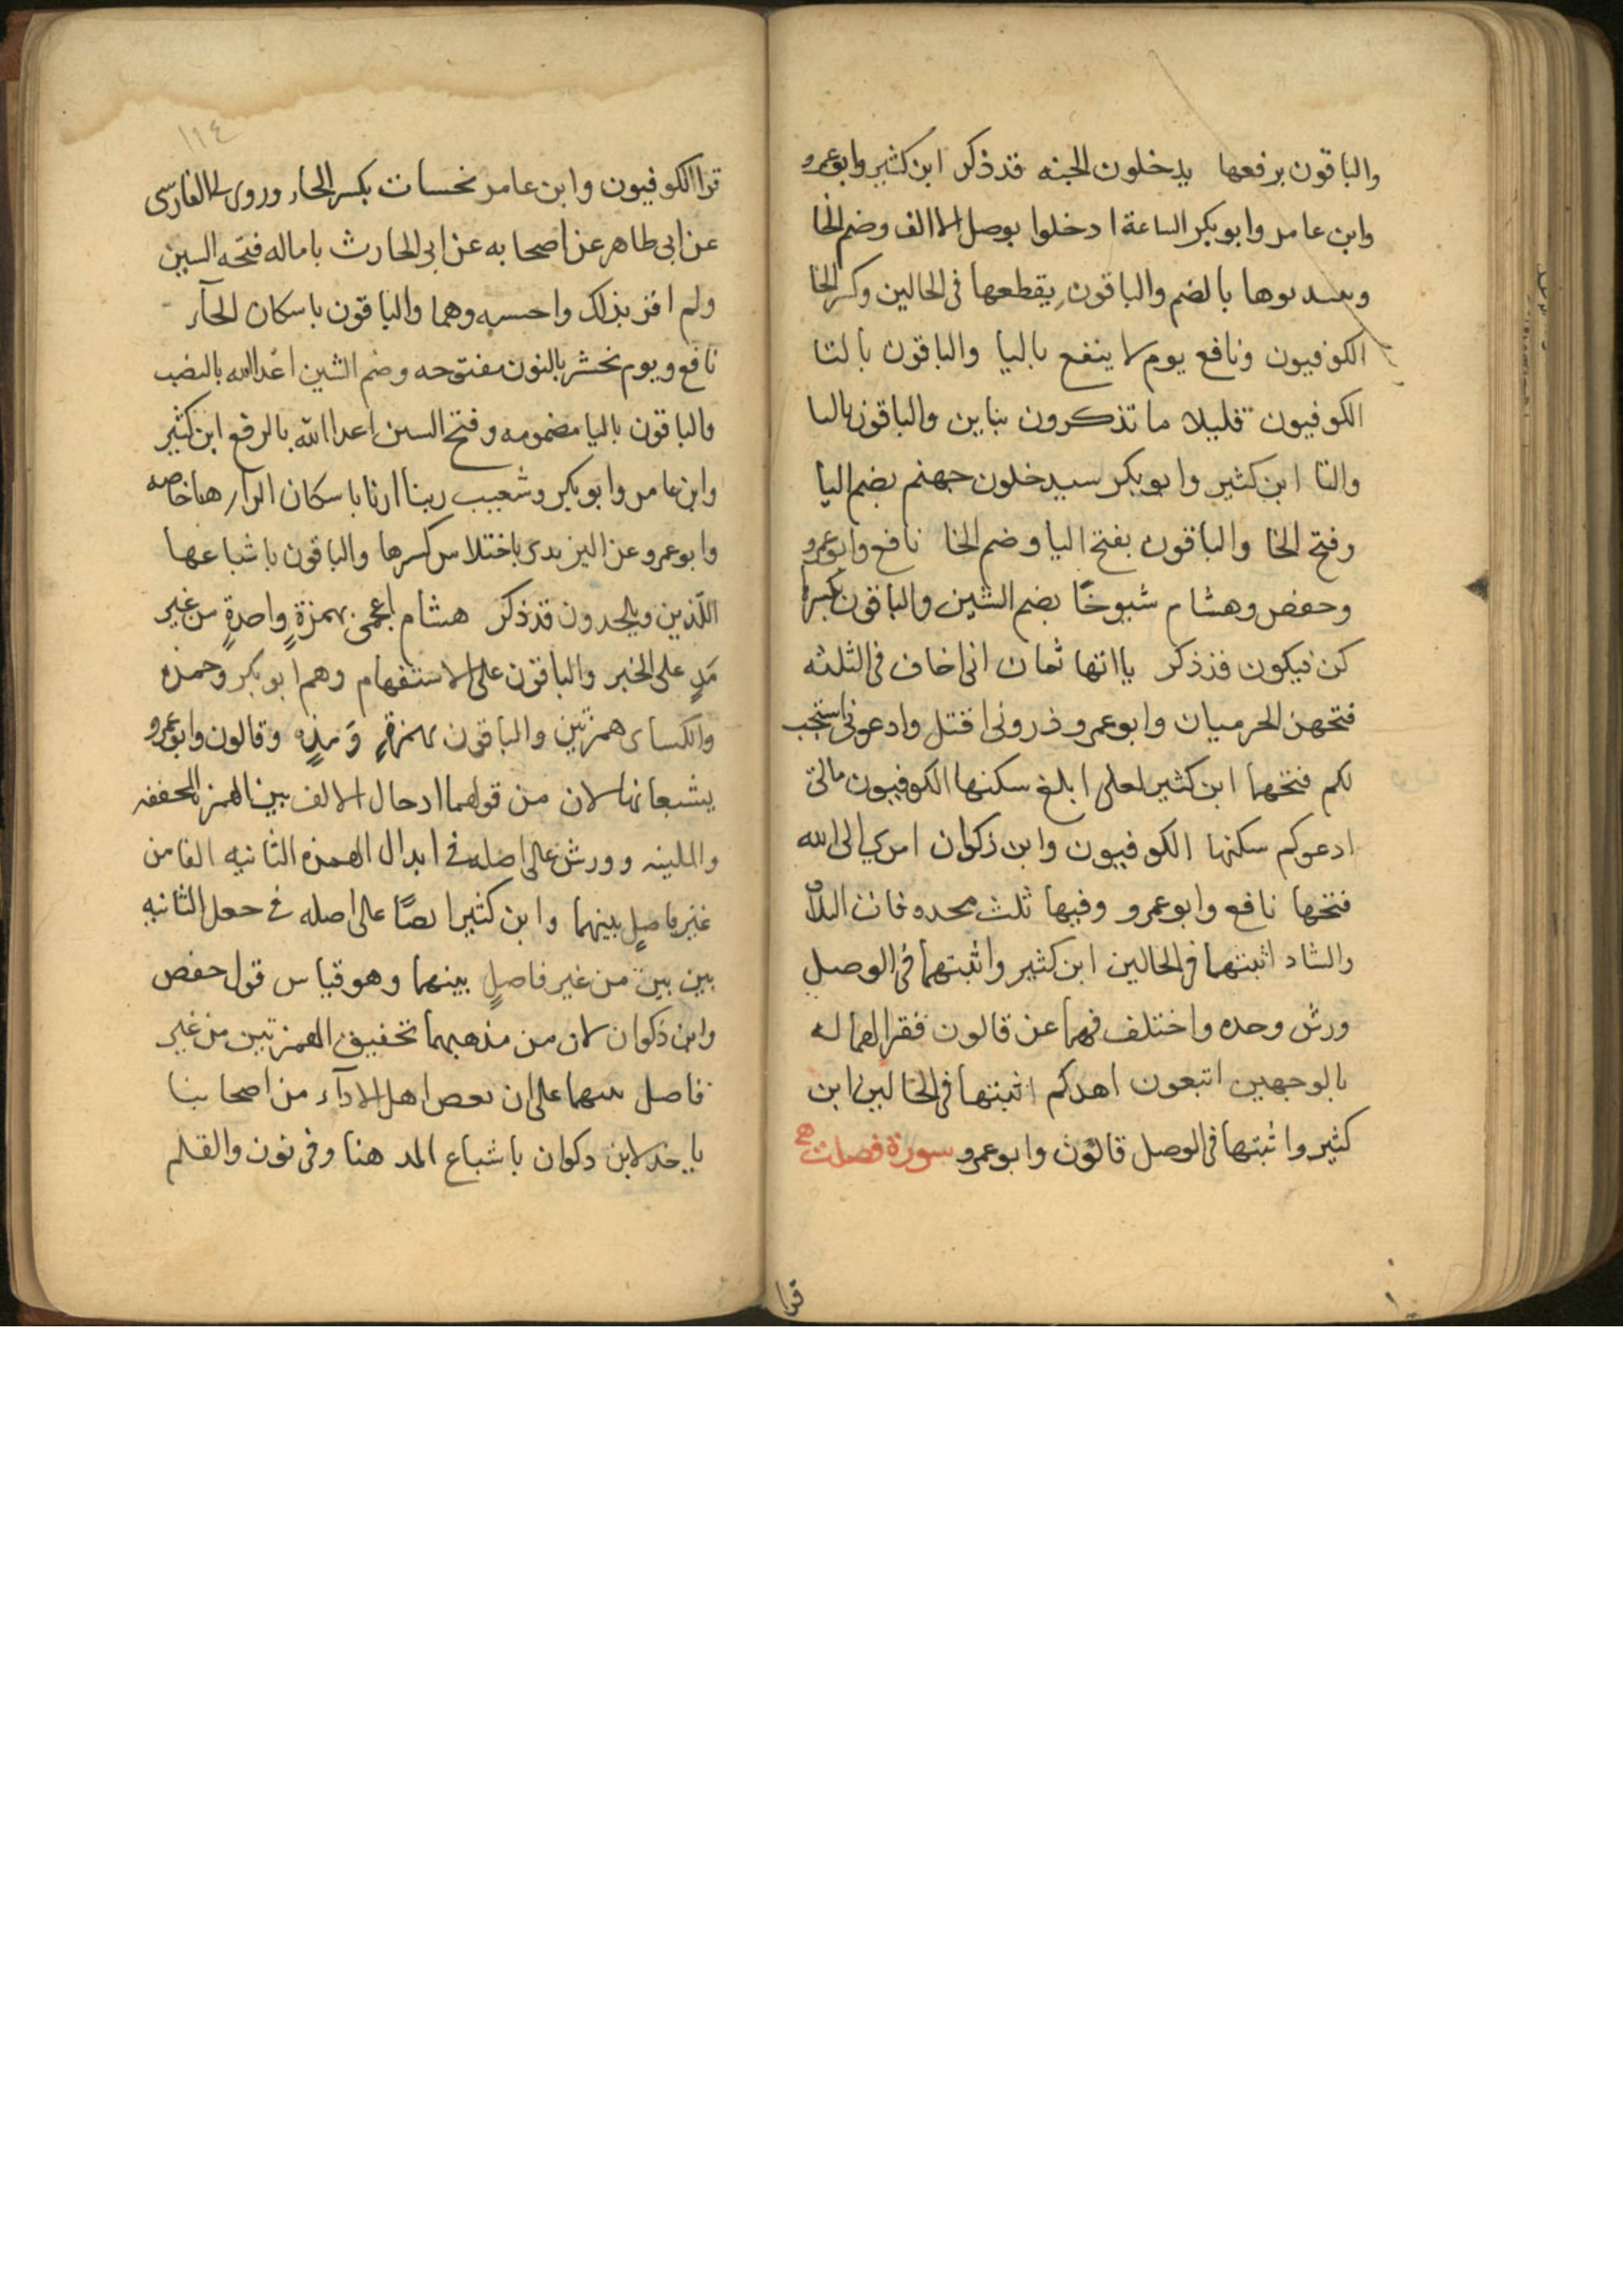 والباقون برفعها يدخلون الجنه قد ذكر ابن كثير وابو عمرو
وابن عامر وابو بكر الساعة ادخلوا بوصل الالف وضم الخا
ويبتدىوها بالضم والباقون يقطعها فى الحالين وكسر الخا
الكوفيون ونافع يوم لا ينفع باليا والباقون بالتا
الكوفيون قليلا ما تذكرون بتاين والباقون باليا
والتا ابن كثير وابو بكر سيدخلون جهنم بضم اليا
وفتح الخا والباقون بفتح اليا وضم الخا نافع وابو عمرو
وحفص وهشام شيوخًا بضم الشين والباقون بكسرها
كن فيكون قد ذكر يااتها ثمان انى اخاف فى الثلثه
فتحهن الحرميان وابو عمرو ذرونى اقتل وادعونى استجب
لكم فتحهما ابن كثير لعلى ابلغ سكنها الكوفيون مالى
ادعوكم سكنها الكوفيون وابن ذكوان امرى الى الله
فتحها نافع وابو عمرو وفيها ثلث محذوفات التلاق
والتناد اثبتهما فى الحالين ابن كثير واثبتهما فى الوصل
ورش وحده واختلف فيهما عن قالون فقراتهما له
بالوجهين اتبعون اهدكم اثبتها فى الحالين ابن
كثير واثبتها فى الوصل قالون وابو عمرو سورة فصلت
قرا
١١٤
قرا الكوفيون وابن عامر نحسات بكسر الحاء وروى لى الفارسى
عن ابى طاهر عن اصحابه عن ابى الحارث باماله فتحه السين
ولم اقر بذلك واحسبه وهما والباقون باسكان الحآء
نافع ويوم نحشر بالنون مفتوحه وضم الشين اعدا الله بالنصب
والباقون باليا مضمومه وفتح السين اعدا الله بالرفع ابن كثير
وابن عامر وابو بكر وشعيب ربنا ارنا باسكان الرآء هنا خاصه
وابو عمرو عن اليزيدى باختلاس كسرها والباقون باشباعها
اللّذين ويلحدون قد ذكر هشام اعجمى بهمزةٍ واحدةٍ من غير
مَدٍ على الخبر والباقون على الاستفهام وهم ابو بكر وحمزه
والكساى همزتين والباقون بهمزةٍ ومَدٍه وقالون وابو عمرو
يشبعانها لان من قولهما ادخال الالف بين الهمزه المحققه
والملينه وورش على اصله فى ابدال الهمزه الثانيه الفا من
غير فاصلٍ بينهما وابن كثير ايضًا على اصله فى جعل الثانيه
بين بين من غير فاصلٍ بينهما وهو قياس قول حفص
وابن ذكوان لان من مذهبهما تحقيق الهمزتين من غير
فاصل بينهما على ان بعض اهل الادآء من اصحابنا
ياخذ لابن ذكوان باشباع المد هنا وفى نون والقلم